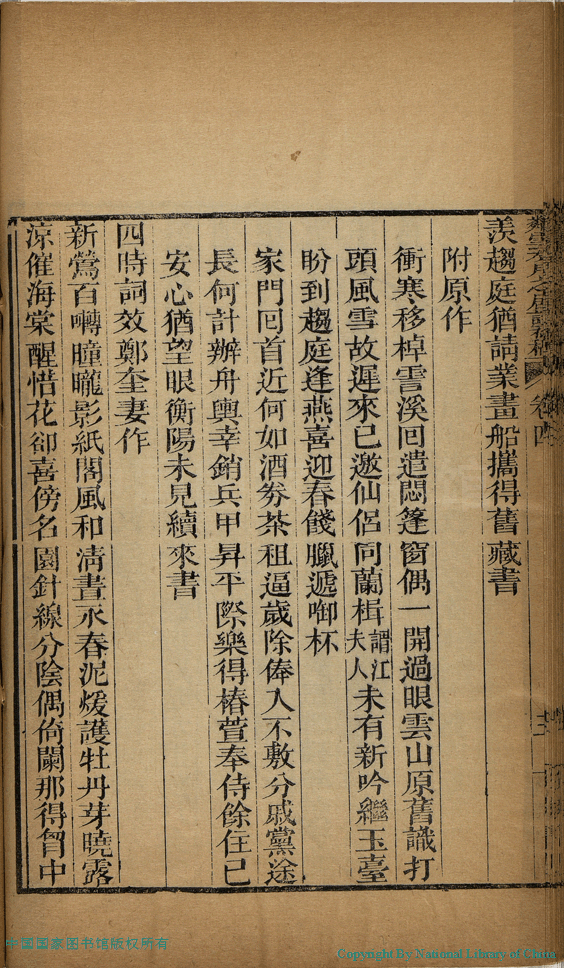 羨趨庭猶請業畫船攜得舊藏書
附原作
衝寒移棹霅溪回遣悶篷窗偶一開過眼雲山原舊識打
頭風雪故遲來已邀仙侶同蘭楫謂江夫人未有新吟繼玉臺
盼到趨庭逢燕喜迎春餞臘遞啣杯
家門回首近何如酒劵茶租逼歲除俸入不敷分戚黨途
長何計辦舟輿幸銷兵甲昇平際樂得椿萱奉侍餘住已
安心猶望眼衡陽未見續來書
四時詞效鄭奎妻作
新鶯百囀曈曨影紙閣風和淸晝永春泥煖護牡丹芽曉露
涼催海棠醒惜花卻喜傍名園針線分陰偶倚闌那得胷中
卷四
中国国家图书馆版权所有
Copyright By National Library of China